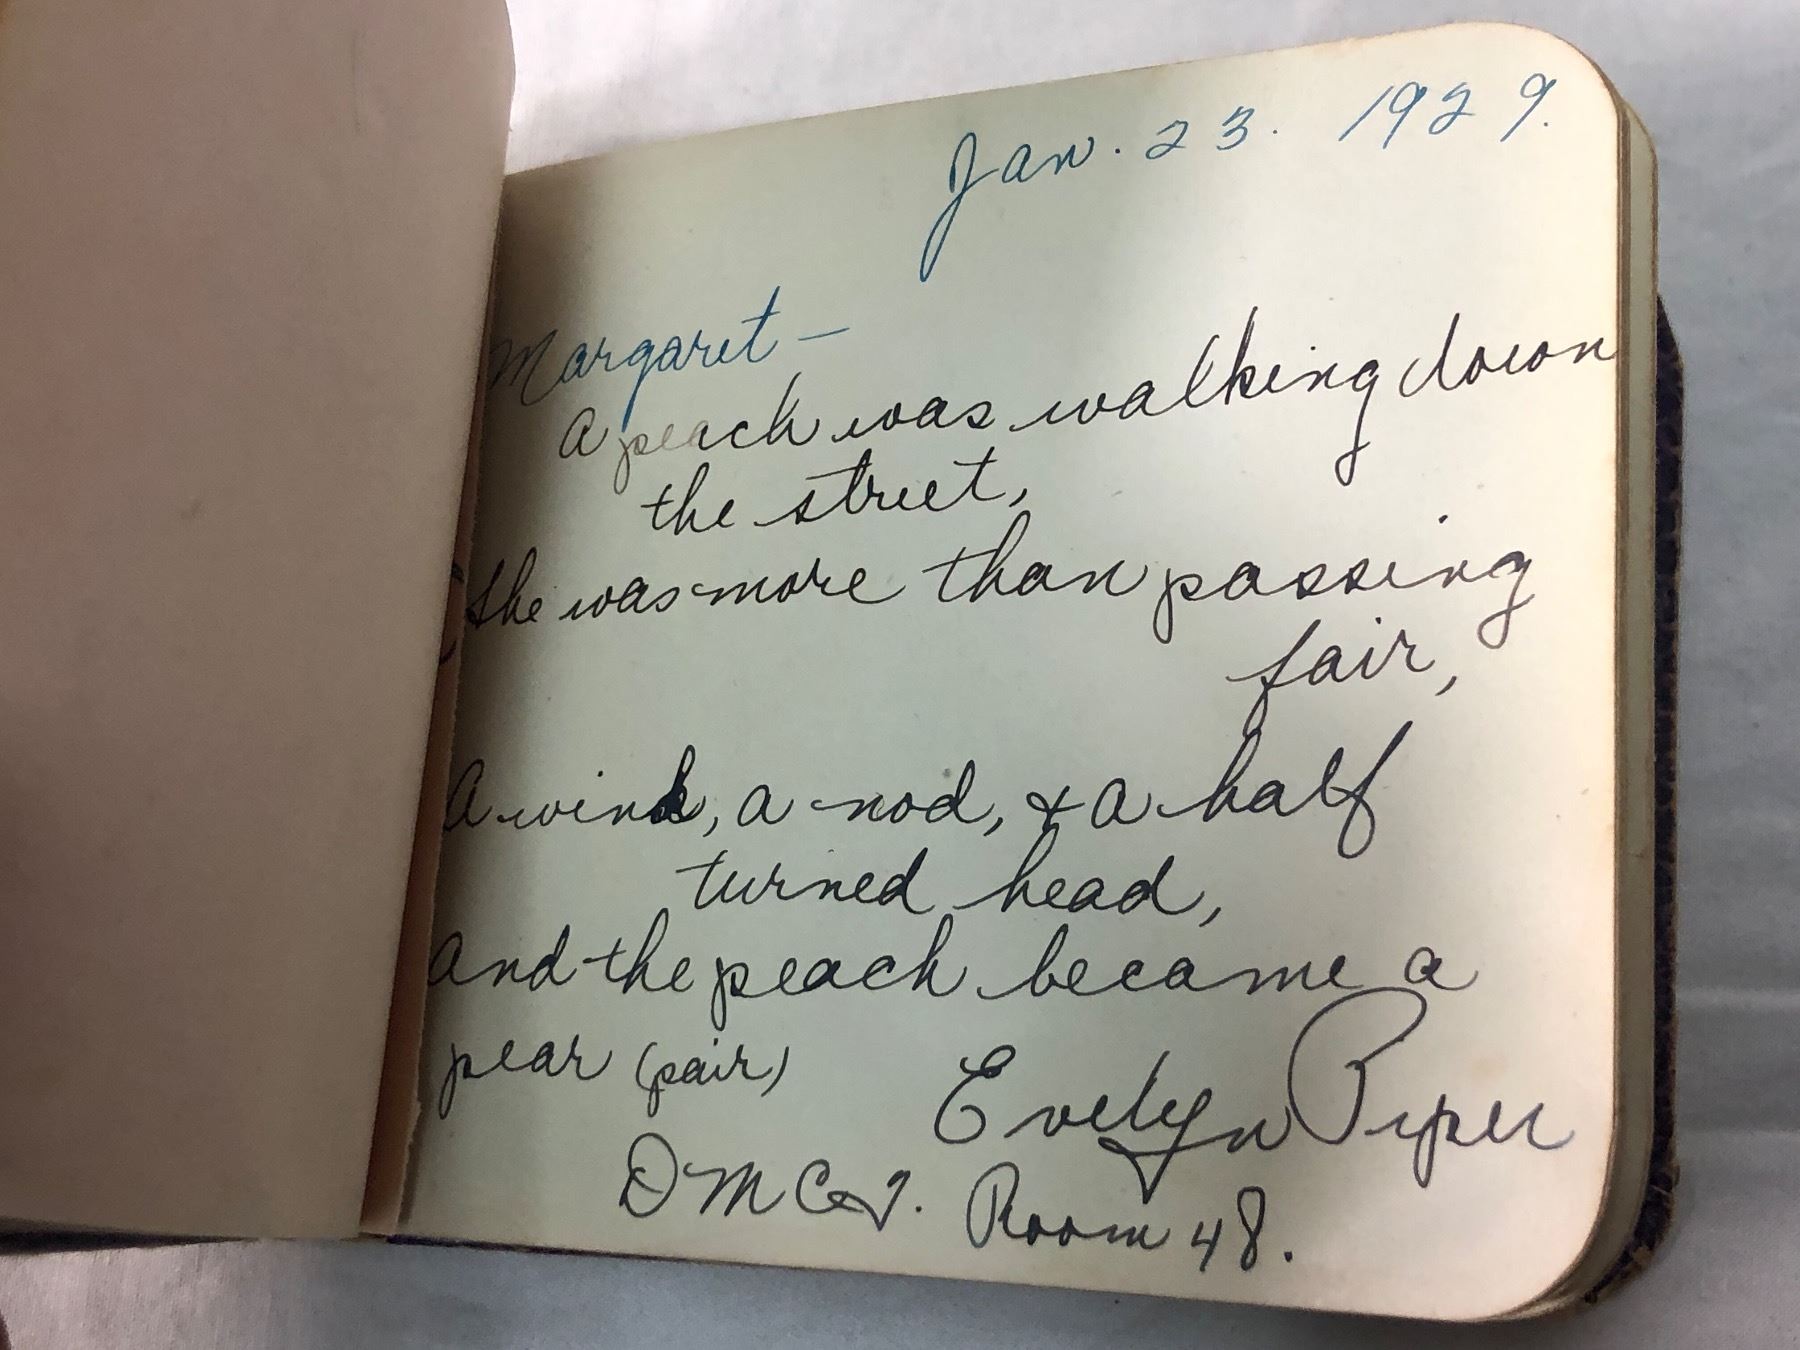 Jan. 23. 1929.
Margaret —
A peach was walking down
the street,
She was more than passing
fair,
A wink, a nod, & a half
turned head,
And the peach became a
pear (pair)
Evelyn Piper
Room 48.